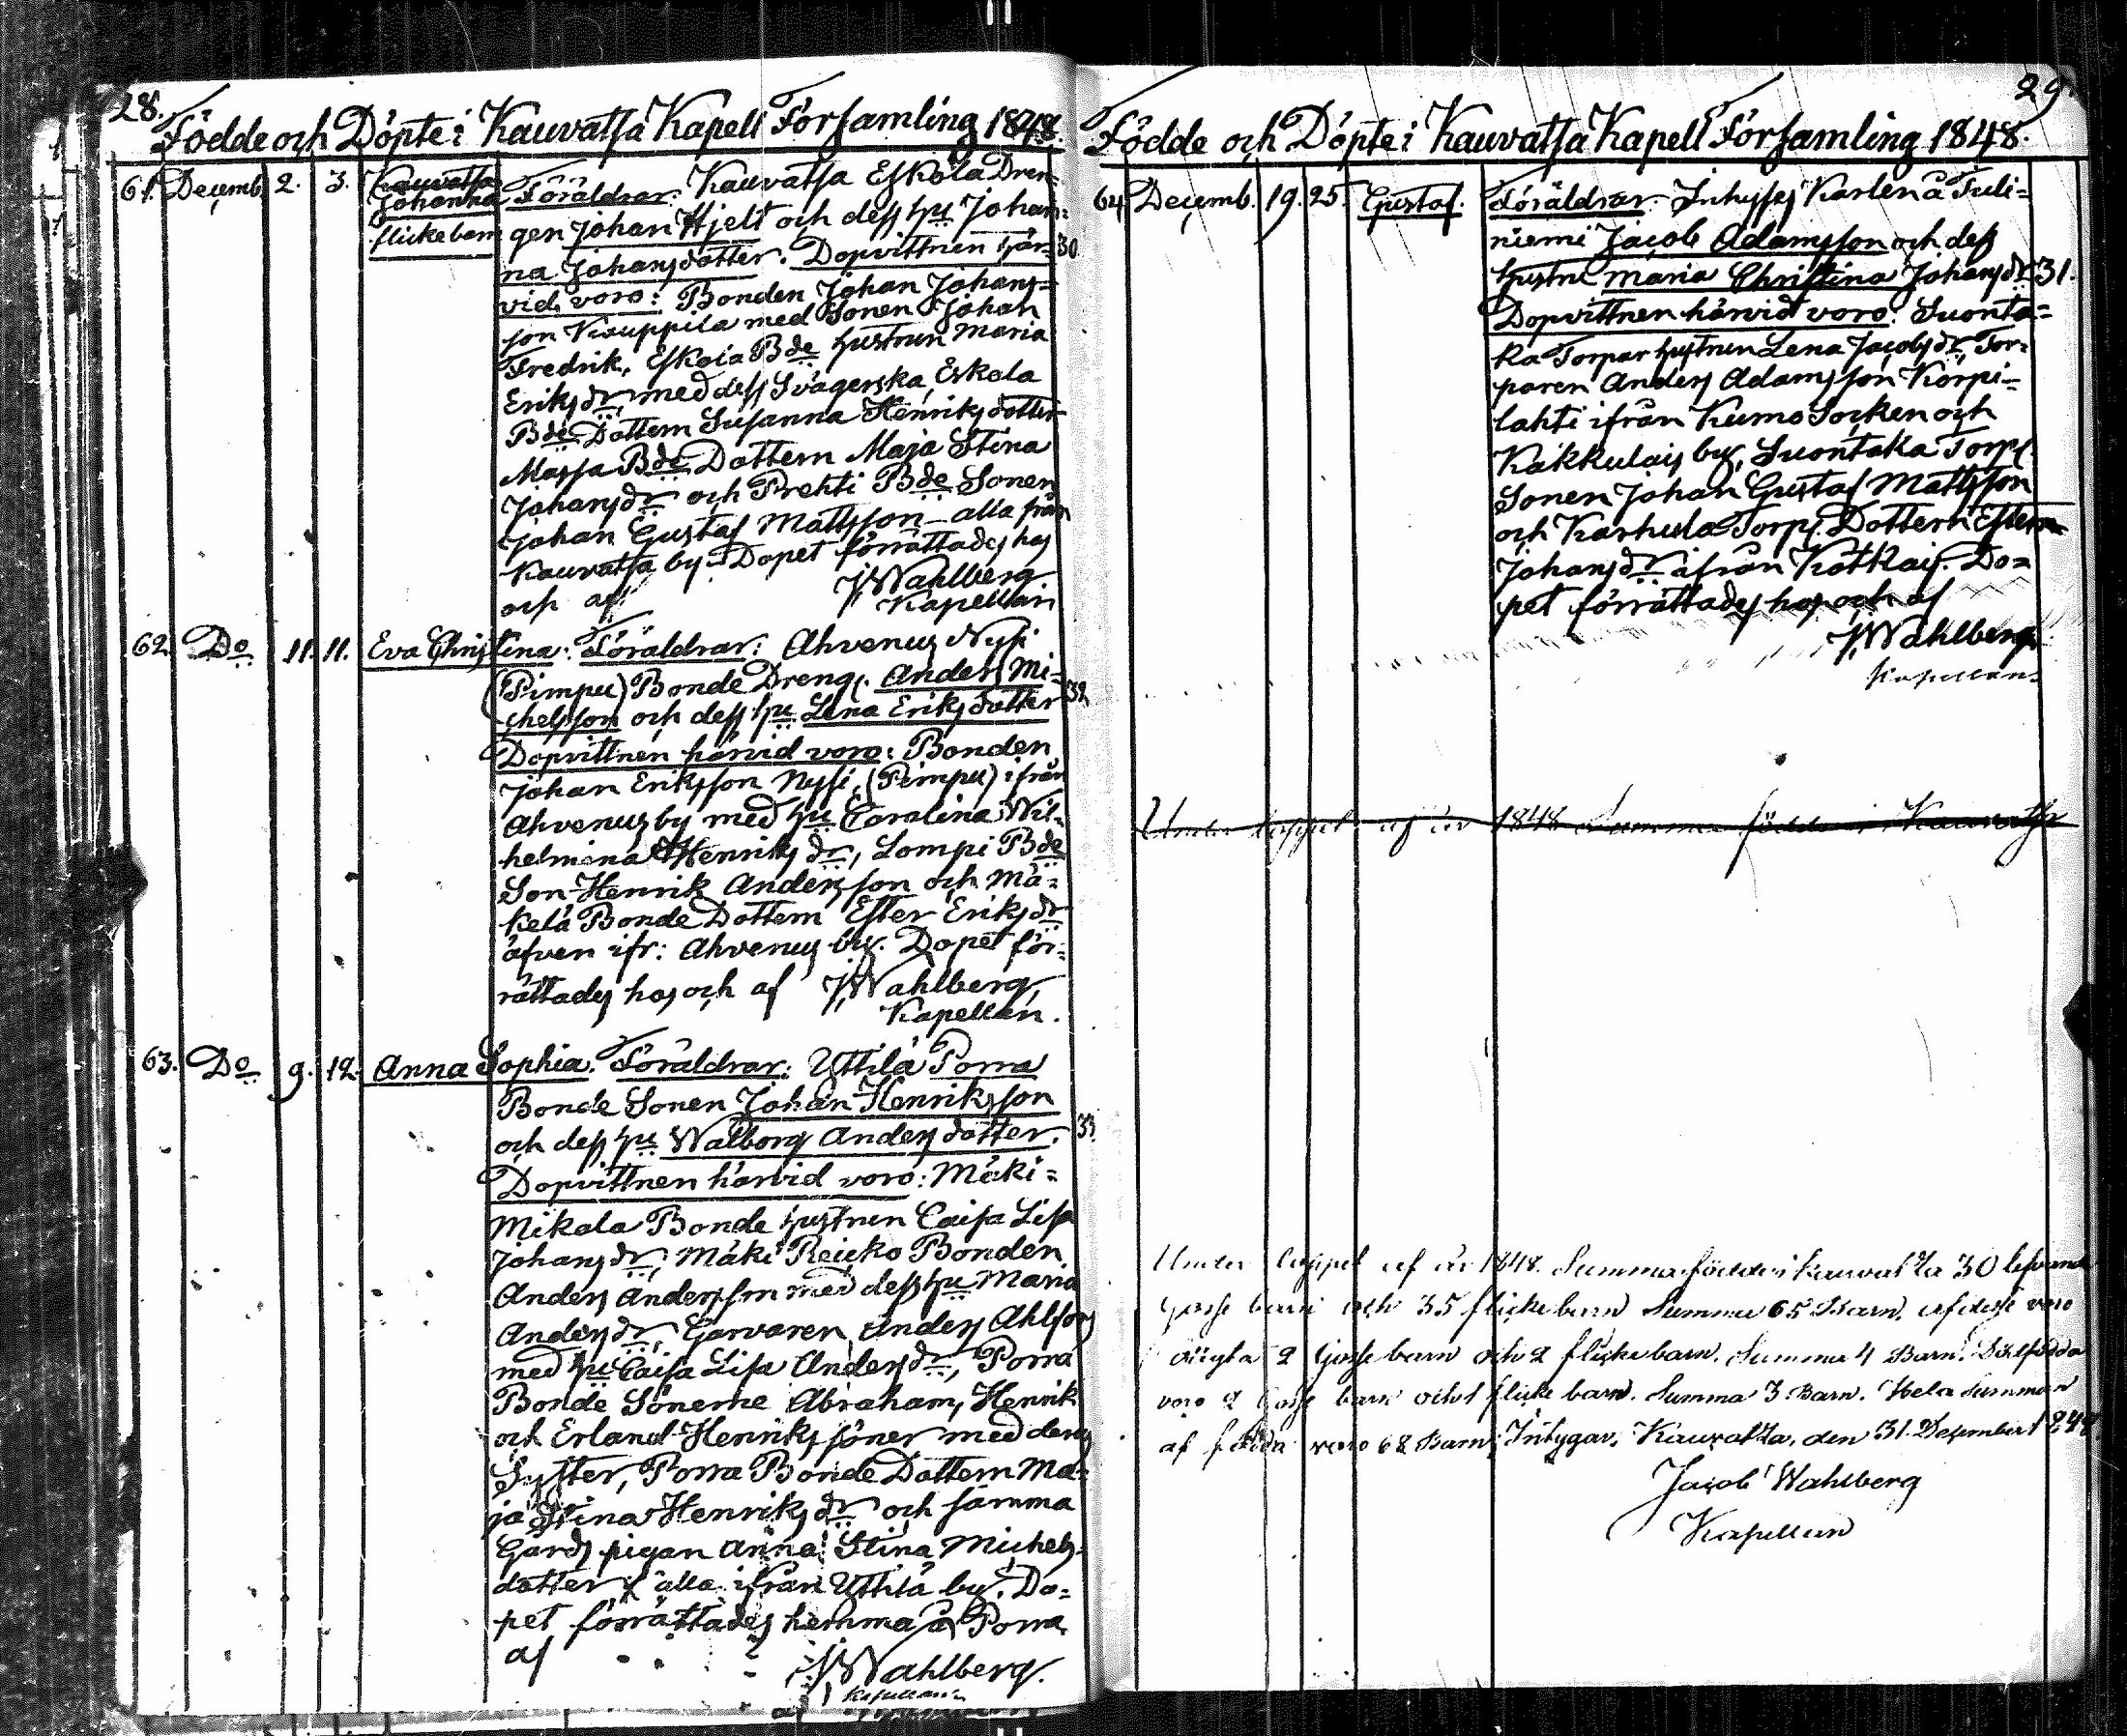 28.
Födde och Döpte i Kauvatsa Kapell Församling 1848.
61. Decemb. 2. 3. Kauvatsa Föräldrar: Kauvatsa Eskola Dren-
Johanna
flickebarn gen Johan Hjelt och dess Hu Johan-
na Johansdotter. Dopvittnen här- 30
vid voro: Bonden Johan Johans-
son Kauppila med Sonen Johan
Fredrik, Eskola Bde Hustrun Maria
Eriksdr, med dess Svägerska Eskola
Bde Dottern Susanna Henriksdotter
Massa Bde Dottern Maja Stina
Johansdr och Prehti Bde Sonen
Johan Gustaf Mattsson alla från
Kauvatsa by. Dopet förrättades hos
och af J. Wahlberg.
Kapellan
62. Do 11. 11. Eva Christina: Föräldrar: Ahvenus Nysi
(Pimpu) Bonde Dreng. Anders Mi-
chelsson och dess Hu Lena Eriksdotter 32
Dopvittnen härvid voro: Bonden
Johan Eriksson Nysi, (Pimpu) ifrån
Ahvenus by med Hu Carolina Wil-
helmina Henriksdr, Lompi Bde
Son Henrik Andersson och Mä-
kelä Bonde Dottern Ester Eriksdr
äfven ifr: Ahvenus by. Dopet för-
rättades hos och af J. Wahlberg,
Kapellan.
63. Do 9. 12. Anna Sophia. Föräldrar: Yttilä Porra
Bonde Sonen Johan Henriksson
och dess Hu Walborg Andersdotter.
Dopvittnen härvid voro: Mäki-
Mikola Bonde Hustrun Caisa Lisa
Johansdr, Mäki Reicko Bonden
Anders Andersson med dess Hu Maria
Andersdr, Garvaren Anders Ahlfors
med Hu Caisa Lisa Andersdr, Porra
Bonde Sönerne Abraham, Henrik
och Erland Henrikssöner med deras
Syster, Porra Bonde Dottern Ma-
ja Stina Henriksdr och samma
Gårds pigan Anna Stina Michels-
dotter alla ifrån Yttilä by. Do-
pet förrättades hemma å Porra
af J. Wahlberg.
Kapellan
29.
Födde och Döpte i Kauvatsa Kapell Församling 1848.
64. Decemb. 19. 25. Gustaf. Föräldrar. Inhyses Karlen å Tuli-
niemi Jacob Adamsson och dess
Hustru Maria Christina Johansdr. 31.
Dopvittnen härvid voro: Suonta-
ka Torpar Hustrun Lena Jacobsdr, Tor-
paren Anders Adamsson Korpi-
lahti ifrån Kumo Socken och
Kakkulais by, Suontaka Torp.
Sonen Johan Gustaf Mattsson
och Karhula Torp. Dottern Ester
Johansdr ifrån Kotkais. Do-
pet förrättades hos och af
J. Wahlberg
Kapellan.
Under loppet af år 1848 Summa födde i Kauvatsa
Under loppet af år 1848. Summa födde i Kauvatsa 30 lefvande
Gosse barn och 35 flicke barn Summa 65 Barn, af desse voro
oägta 2 Gosse barn och 2 flicke barn. Summa 4 Barn. Dödfödda
voro 2 Gosse barn och 1 flicke barn. Summa 3 Barn. Hela Summan
af födda voro 68 Barn; Intygar, Kauvatsa, den 31. December 1848
Jacob Wahlberg
Kapellan